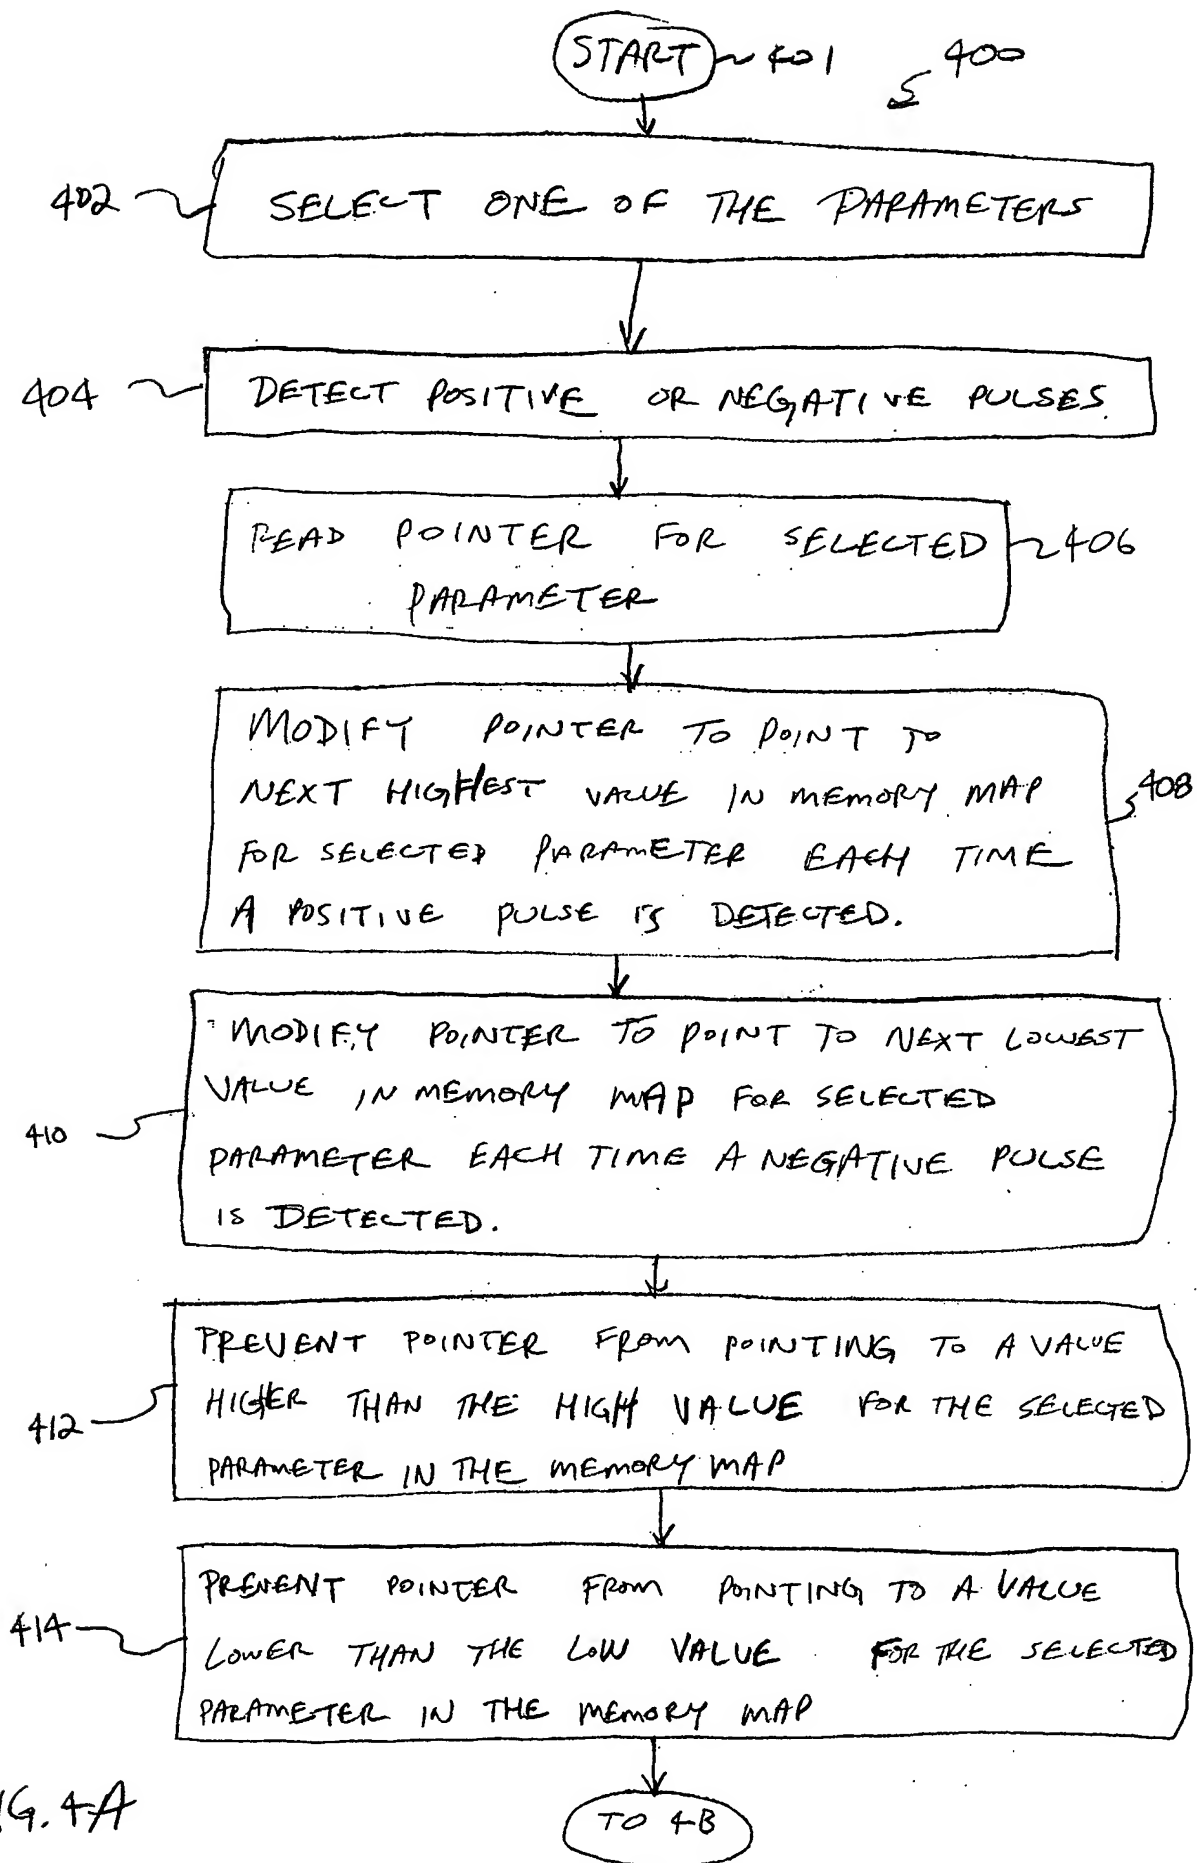 START 401
400
402 SELECT ONE OF THE PARAMETERS
404 DETECT POSITIVE OR NEGATIVE PULSES.
READ POINTER FOR SELECTED 406
PARAMETER
MODIFY POINTER TO POINT TO
NEXT HIGHEST VALUE IN MEMORY MAP 408
FOR SELECTED PARAMETER EACH TIME
A POSITIVE PULSE IS DETECTED.
MODIFY POINTER TO POINT TO NEXT LOWEST
VALUE IN MEMORY MAP FOR SELECTED
410 PARAMETER EACH TIME A NEGATIVE PULSE
IS DETECTED.
PREVENT POINTER FROM POINTING TO A VALUE
412 HIGHER THAN THE HIGH VALUE FOR THE SELECTED
PARAMETER IN THE MEMORY MAP
PREVENT POINTER FROM POINTING TO A VALUE
414 LOWER THAN THE LOW VALUE FOR THE SELECTED
PARAMETER IN THE MEMORY MAP
IG. 4A
TO 4B